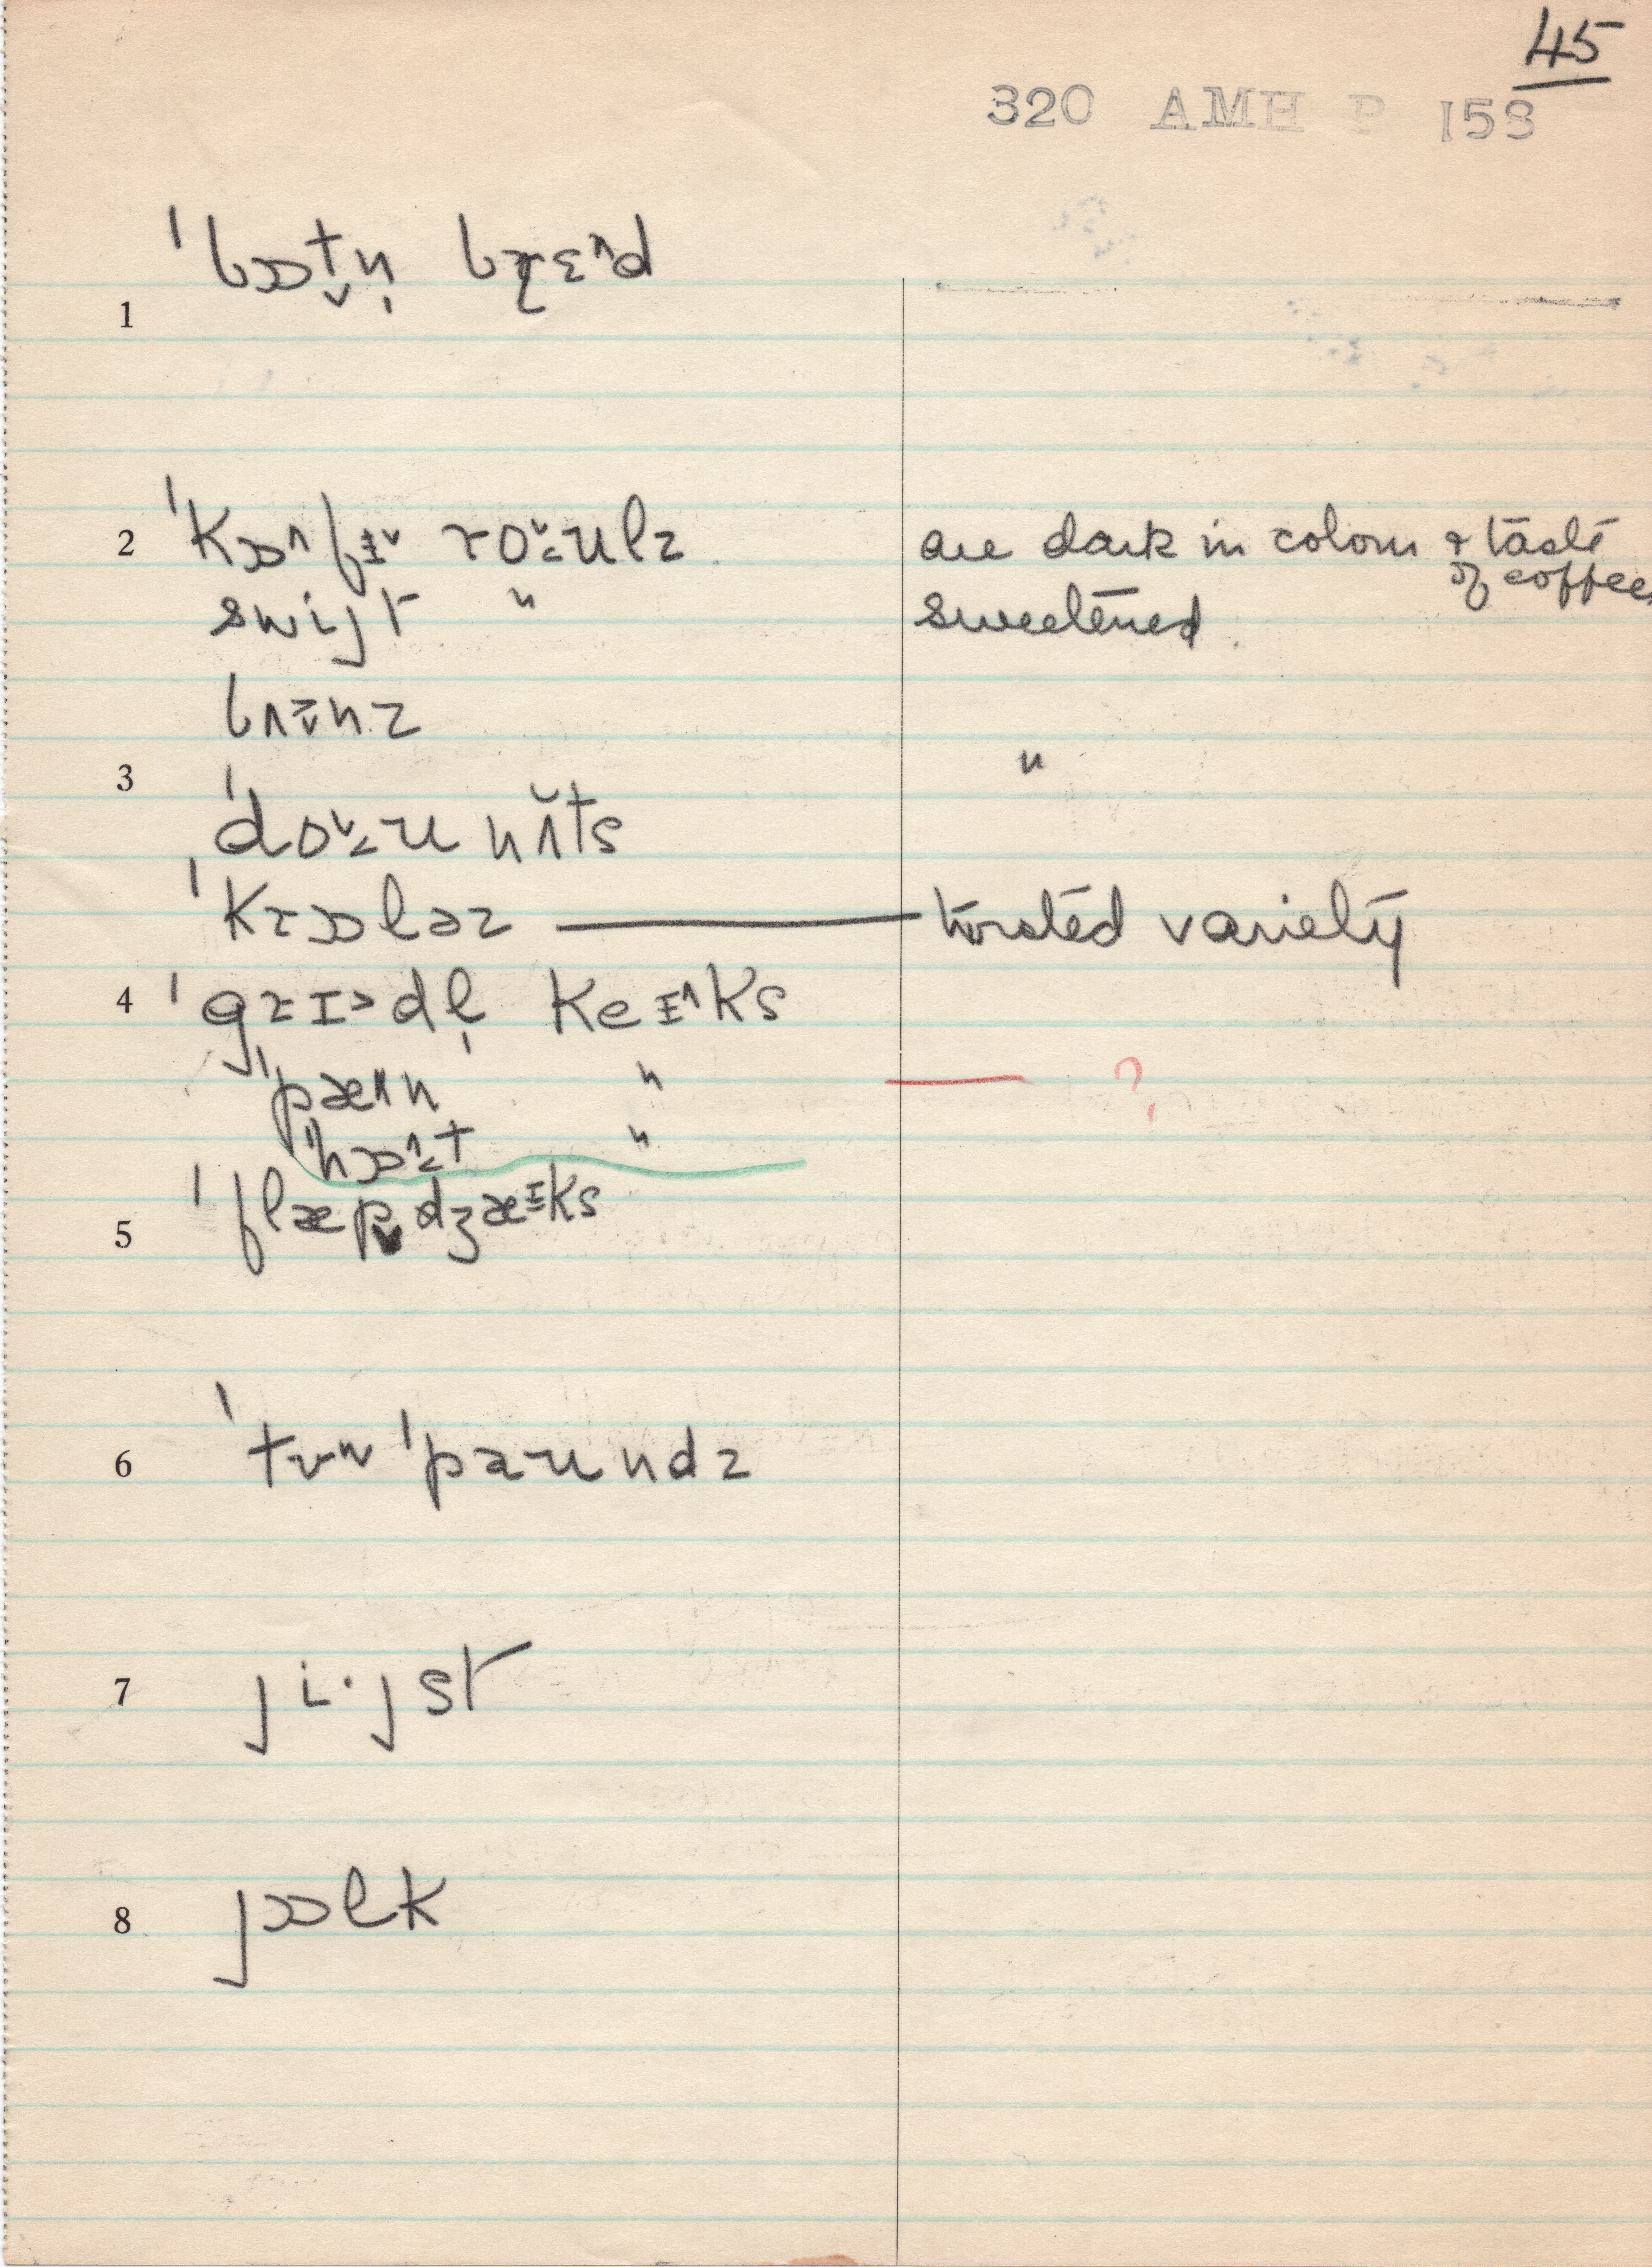 45
320 AMH P 158
1 ˈbɒt̬n̩ brɛ^d
2 ˈkɒ^fɪ˅ ro˅˂ʊlz are dark in colour & taste of coffee
swijt " sweetened
bʌnz
3 ˈdo˅˂ʊnʌ̆ts "
ˈkrɒləz — twisted variety
4 ˈgrɪ˃dl̩ keɪ^ks
ˈpæ^n " — ?
ˈhɒ^˂t "
5 ˈflæp̬dʒæɪks
6 ˈtʊw ˈpaʊndz
7 ji·jst
8 jɒlk